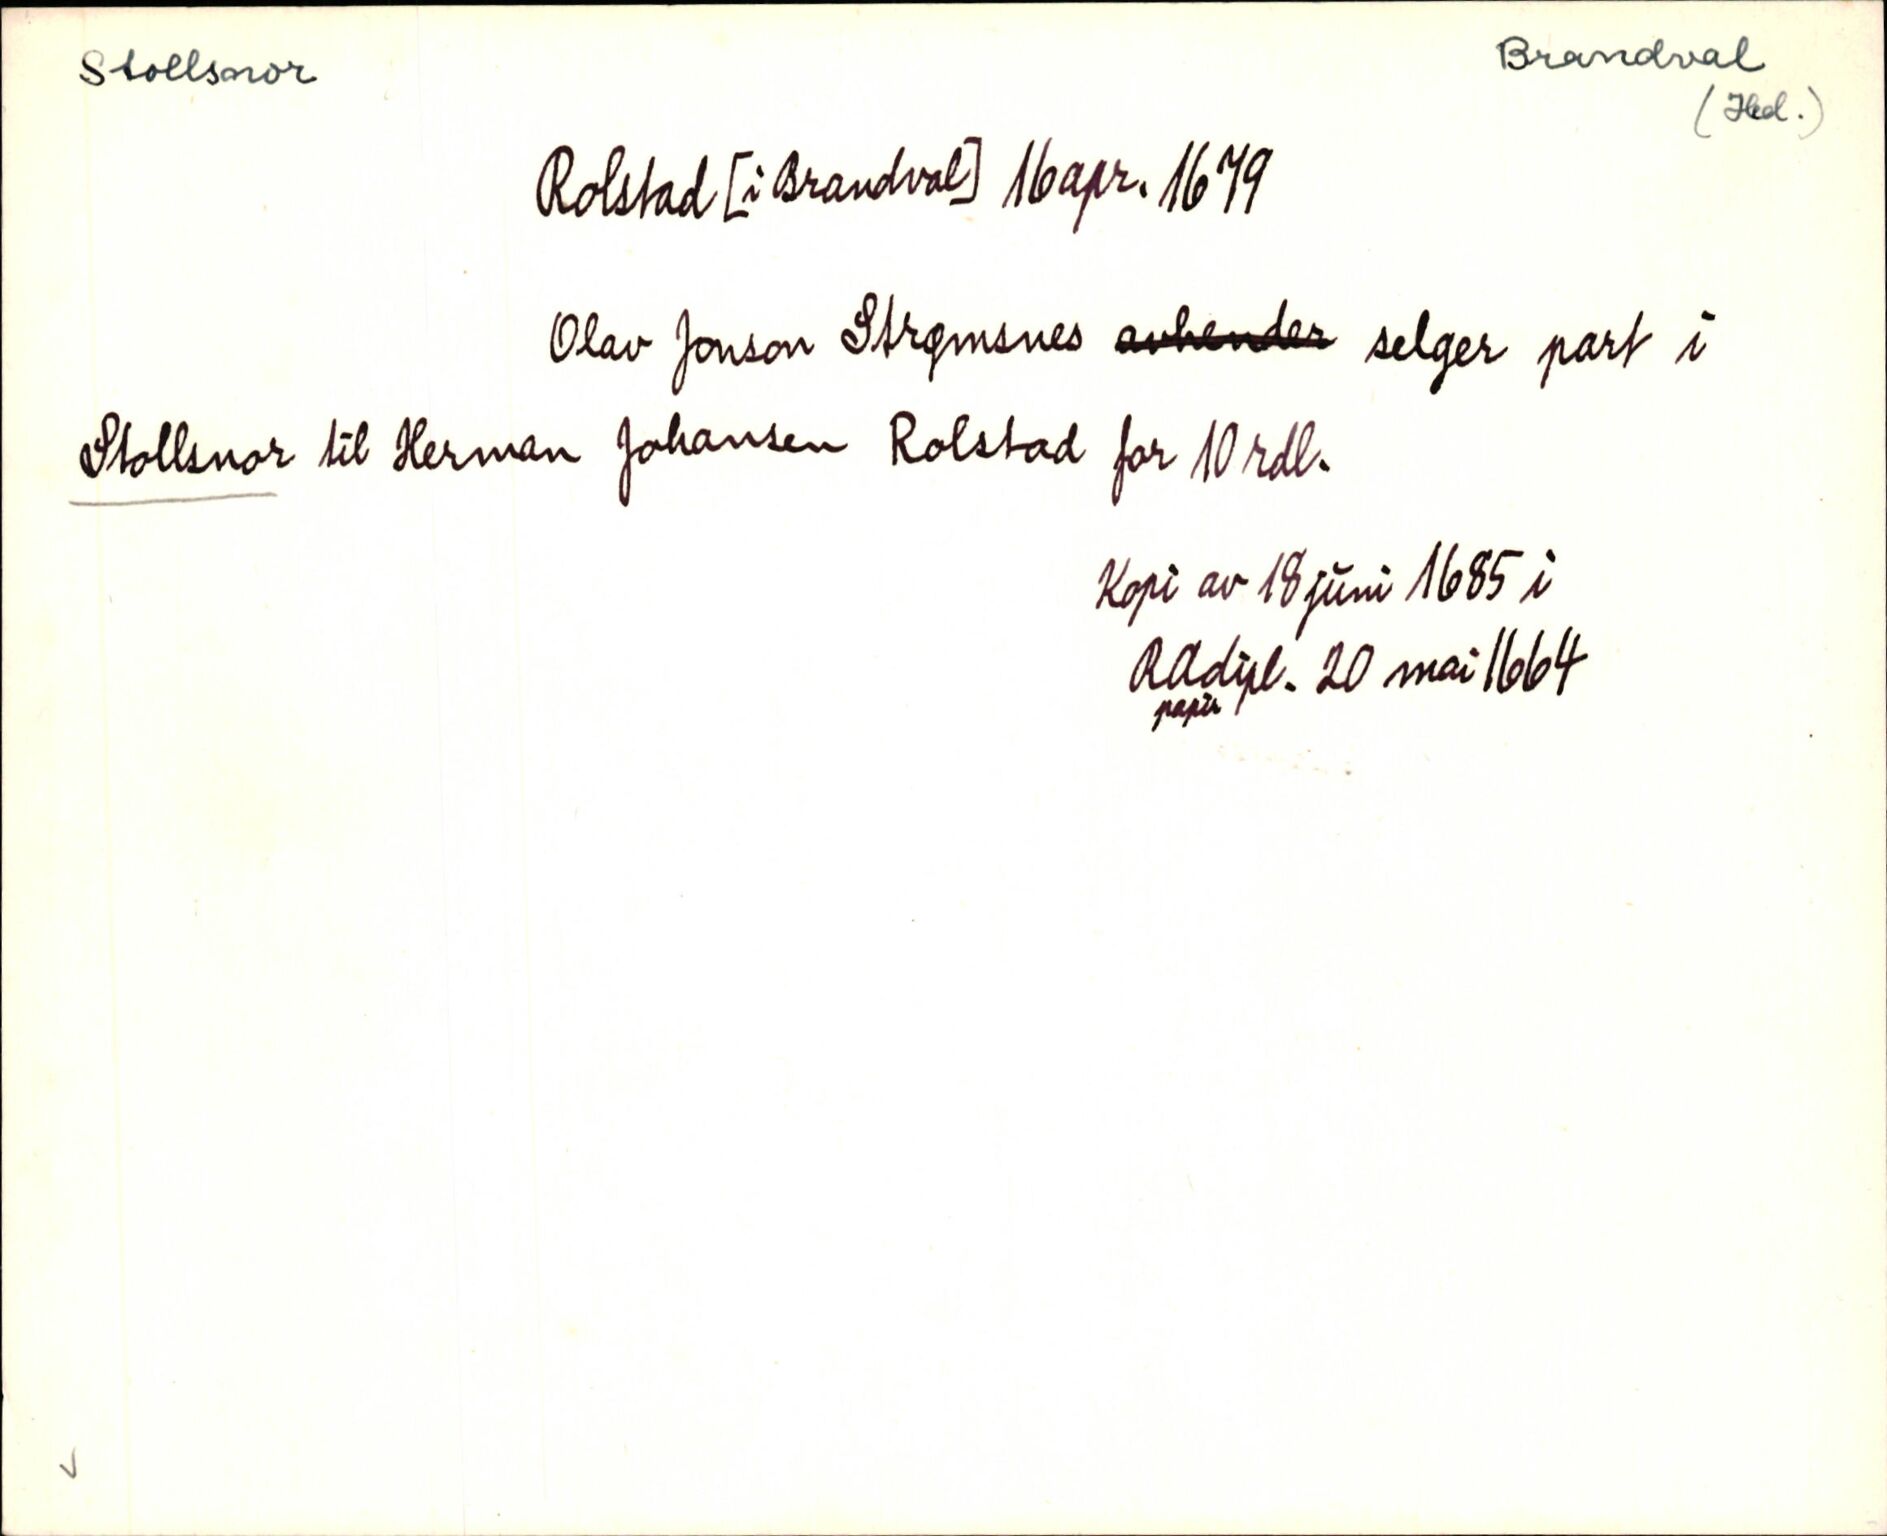 Stollsnor
Brandval
(Hed.)
Rolstad [i Brandval] 16 apr. 1679
Olav Jonson Strømsnes avhender selger part i
Stollsnor til Herman Johansen Rolstad for 10 rdl.
Kopi av 18 juni 1685 i
RAdipl. 20 mai 1664
papir